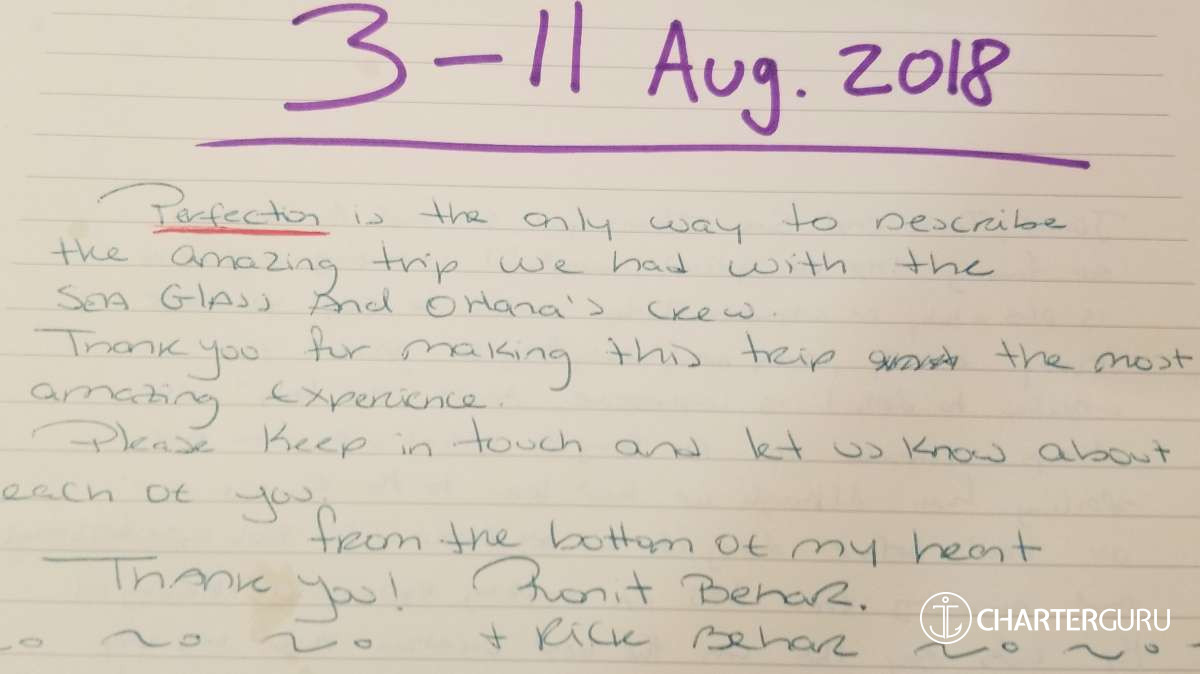 3-11 Aug. 2018
Perfection is the only way to describe
the amazing trip we had with the
Sea Glass and Ohana's crew.
Thank you for making this trip the most
amazing experience.
Please keep in touch and let us know about
each of you.
from the bottom of my heart
Thank you! Ronit Behar.
+ Rick Behar
CHARTERGURU